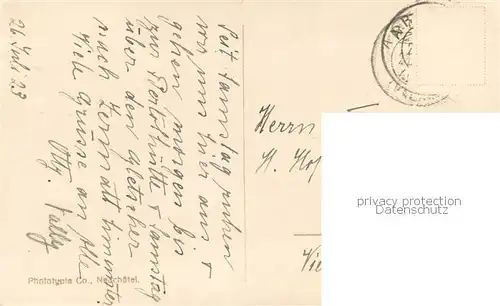 26. Juli 23
Seit Samstag ruhen
wir uns hier aus &
gehen morgen bis
zur Bertolhütte & Samstag
über den Gletscher
nach Zermatt hinunter.
Viele Grüsse an Alle
Otty. Fally
Phototypie Co., Neuchâtel.
Herrn
H. Hof
privacy protection
Datenschutz